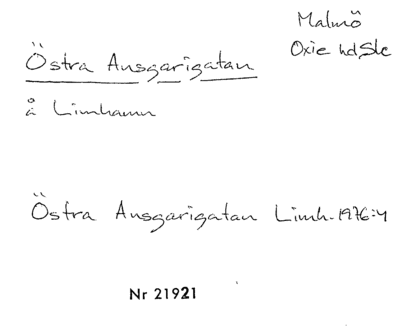 Malmö
Östra Ansgarigatan Oxie hd, Sk
å Limhamn
Östra Ansgarigatan Limh. 1976:4
Nr 21921